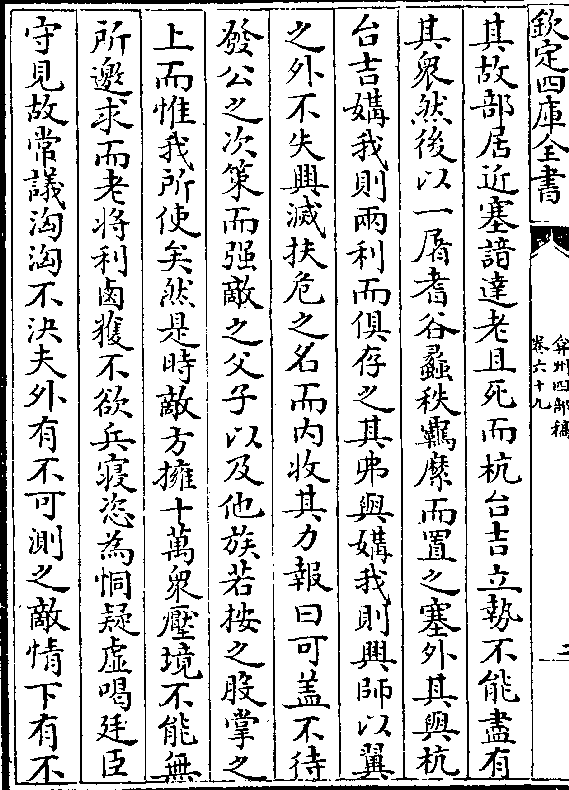 欽定四庫全書
弇州四部稿
卷六十九
二
其故部居近塞諳達老且死而杭台吉立勢不能盡有
其衆然後以一屠耆谷蠡秩羈縻而置之塞外其與杭
台吉媾我則兩利而俱存之其弗與媾我則興師以翼
之外不失興滅扶危之名而内收其力報曰可蓋不待
發公之次策而强敵之父子以及他族若按之股掌之
上而惟我所使矣然是時敵方擁十萬衆壓境不能無
所邀求而老將利鹵獲不欲兵寢恣為恫疑虚喝廷臣
守見故常議洶洶不決夫外有不可測之敵情下有不